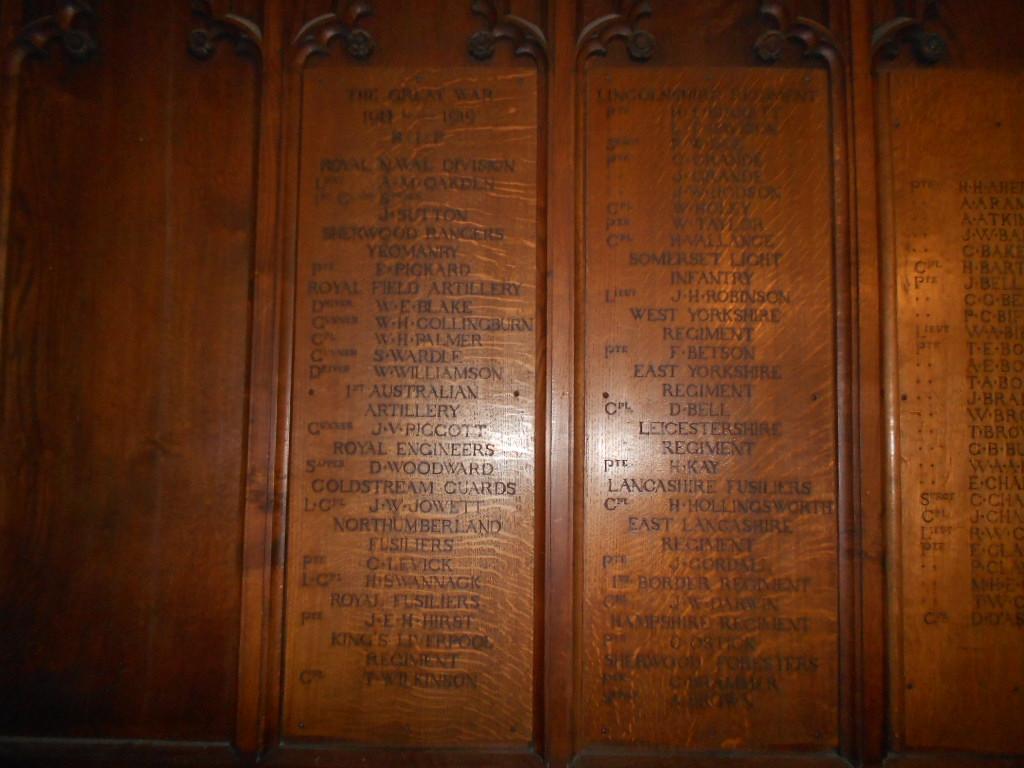 THE GREAT WAR
1914 — 1919
R·I·P
ROYAL NAVAL DIVISION
A·M·OAKDEN
J·SUTTON
SHERWOOD RANGERS
YEOMANRY
PTE E·PICKARD
ROYAL FIELD ARTILLERY
DRIVER W·E·BLAKE
GUNNER W·H·COLLINGBURN
CPL W·H·PALMER
GUNNER S·WARDLE
DRIVER W·WILLIAMSON
1ST AUSTRALIAN
ARTILLERY
GUNNER J·V·PIGGOTT
ROYAL ENGINEERS
SAPPER D·WOODWARD
COLDSTREAM GUARDS
L·CPL J·W·JOWETT
NORTHUMBERLAND
FUSILIERS
PTE C·LEVICK
L·CPL H·SWANNACK
ROYAL FUSILIERS
PTE J·E·H·HIRST
KING'S LIVERPOOL
REGIMENT
CPL T·WILKINSON
LINCOLNSHIRE REGIMENT
PTE
PTE G·GRANDE
J·GRANDE
J·W·HODSON
CPL W·HOLEY
PTE W·TAYLOR
CPL H·VALLANCE
SOMERSET LIGHT
INFANTRY
LIEUT J·H·ROBINSON
WEST YORKSHIRE
REGIMENT
PTE F·BETSON
EAST YORKSHIRE
REGIMENT
CPL D·BELL
LEICESTERSHIRE
REGIMENT
PTE H·KAY
LANCASHIRE FUSILIERS
CPL H·HOLLINGSWORTH
EAST LANCASHIRE
REGIMENT
PTE J·CORDALL
1ST BORDER REGIMENT
CPL J·W·DARWIN
HAMPSHIRE REGIMENT
PTE O·OSTICK
SHERWOOD FORESTERS
PTE C·BRAMMER
A·BROWN
PTE R·H·ABE
A·ARAM
A·ATKIN
J·W·BA
C·BAKE
CPL H·BART
PTE J·BELL
C·G·BE
P·C·BIF
LIEUT W·A·BI
PTE T·E·BO
A·E·BO
T·A·BO
J·BRA
W·BRO
T·BRO
G·B·BU
W·A·A
E·CHA
SERGT C·CHA
CPL J·CHA
LIEUT R·W·C
PTE E·CLA
P·CLA
M·H·E
T·W·C
CPL D·DAS